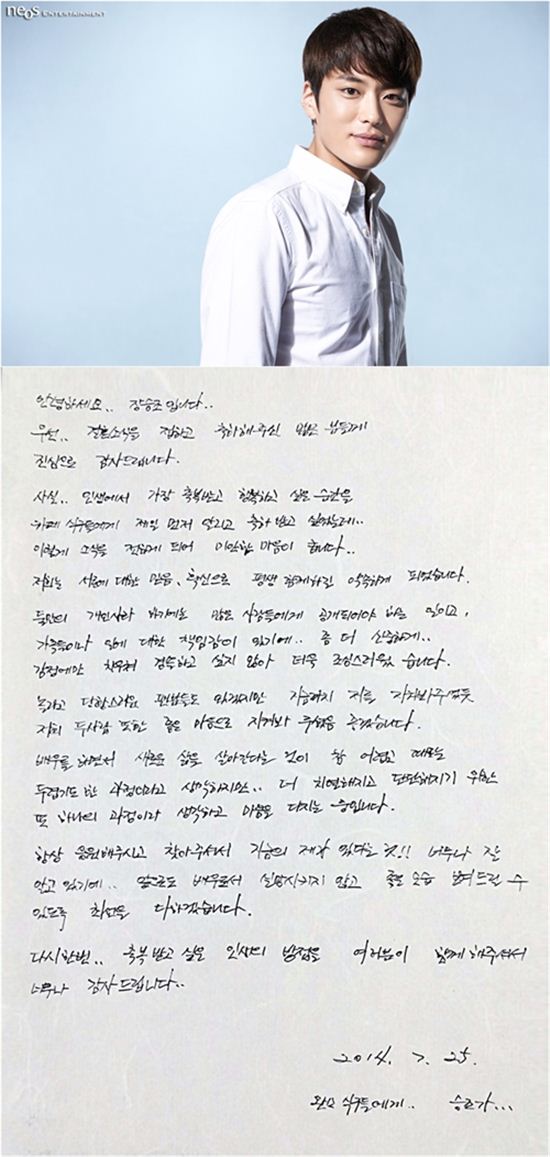 neos ENTERTAINMENT
안녕하세요.. 장승조입니다..
우선.. 결혼소식을 접하고 축하해주신 많은 분들께
진심으로 감사드립니다.
사실.. 인생에서 가장 축복받고 행복하고 싶은 순간을
카페 식구들에게 제일 먼저 알리고 축하 받고 싶었는데..
이렇게 소식을 전하게 되어 미안한 마음이 큽니다..
저희는 서로에 대한 믿음, 확신으로 평생 함께하길 약속하게 되었습니다.
둘만의 개인사라 많은 사람들에게 공개되어야 하는 일이고,
가족들이나 일에 대한 책임감이 있기에.. 좀 더 신중하게..
감정에만 치우쳐 경솔하고 싶지 않아 더욱 조심스러웠습니다.
놀라고 당황스러운 팬분들도 있겠지만 지금까지 저를 지켜봐주셨듯
저희 두사람 또한 좋은 마음으로 지켜봐 주셨음 좋겠습니다.
배우를 하면서 새로운 삶을 살아간다는 것이 참 어렵고 때로는
두렵기도 한 과정이라고 생각하지만.. 더 치열해지고 단단해지기 위한
또 하나의 과정이라 생각하고 마음을 다지는 중입니다.
항상 응원해주시고 찾아주셔서 지금의 제가 있다는 것!! 너무나 잘
알고 있기에.. 앞으로도 배우로서 실망시키지 않고 좋은 모습 보여드릴 수
있도록 최선을 다하겠습니다.
다시한번.. 축복 받고 싶은 인생의 방점을 여러분이 함께 해주셔서
너무나 감사드립니다..
2014. 7. 25.
식구들에게.. 승조가...